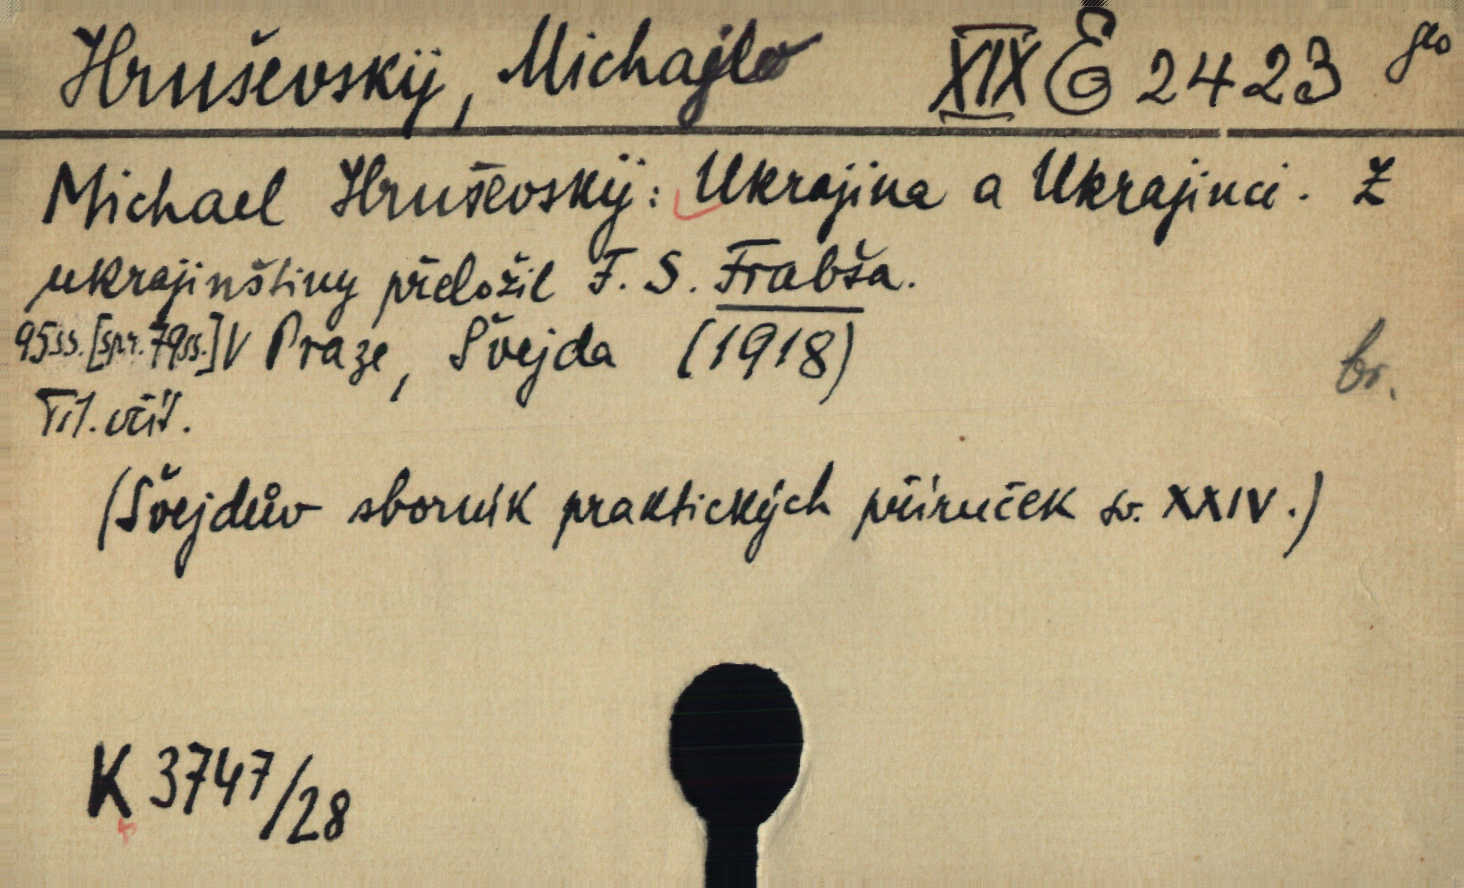 Hruševskÿ, Michajlo XIX E 2423 geo
Michael Hruševskÿ: Ukrajina a Ukrajinci. Z
ukrajinštiny přeložil F. S. Frabša.
95ss. [spr. 79ss.] V Praze, Švejda (1918)
br.
Tit. včít.
(Švejdův sborník praktických příruček sv. XXIV.)
K 3747/28